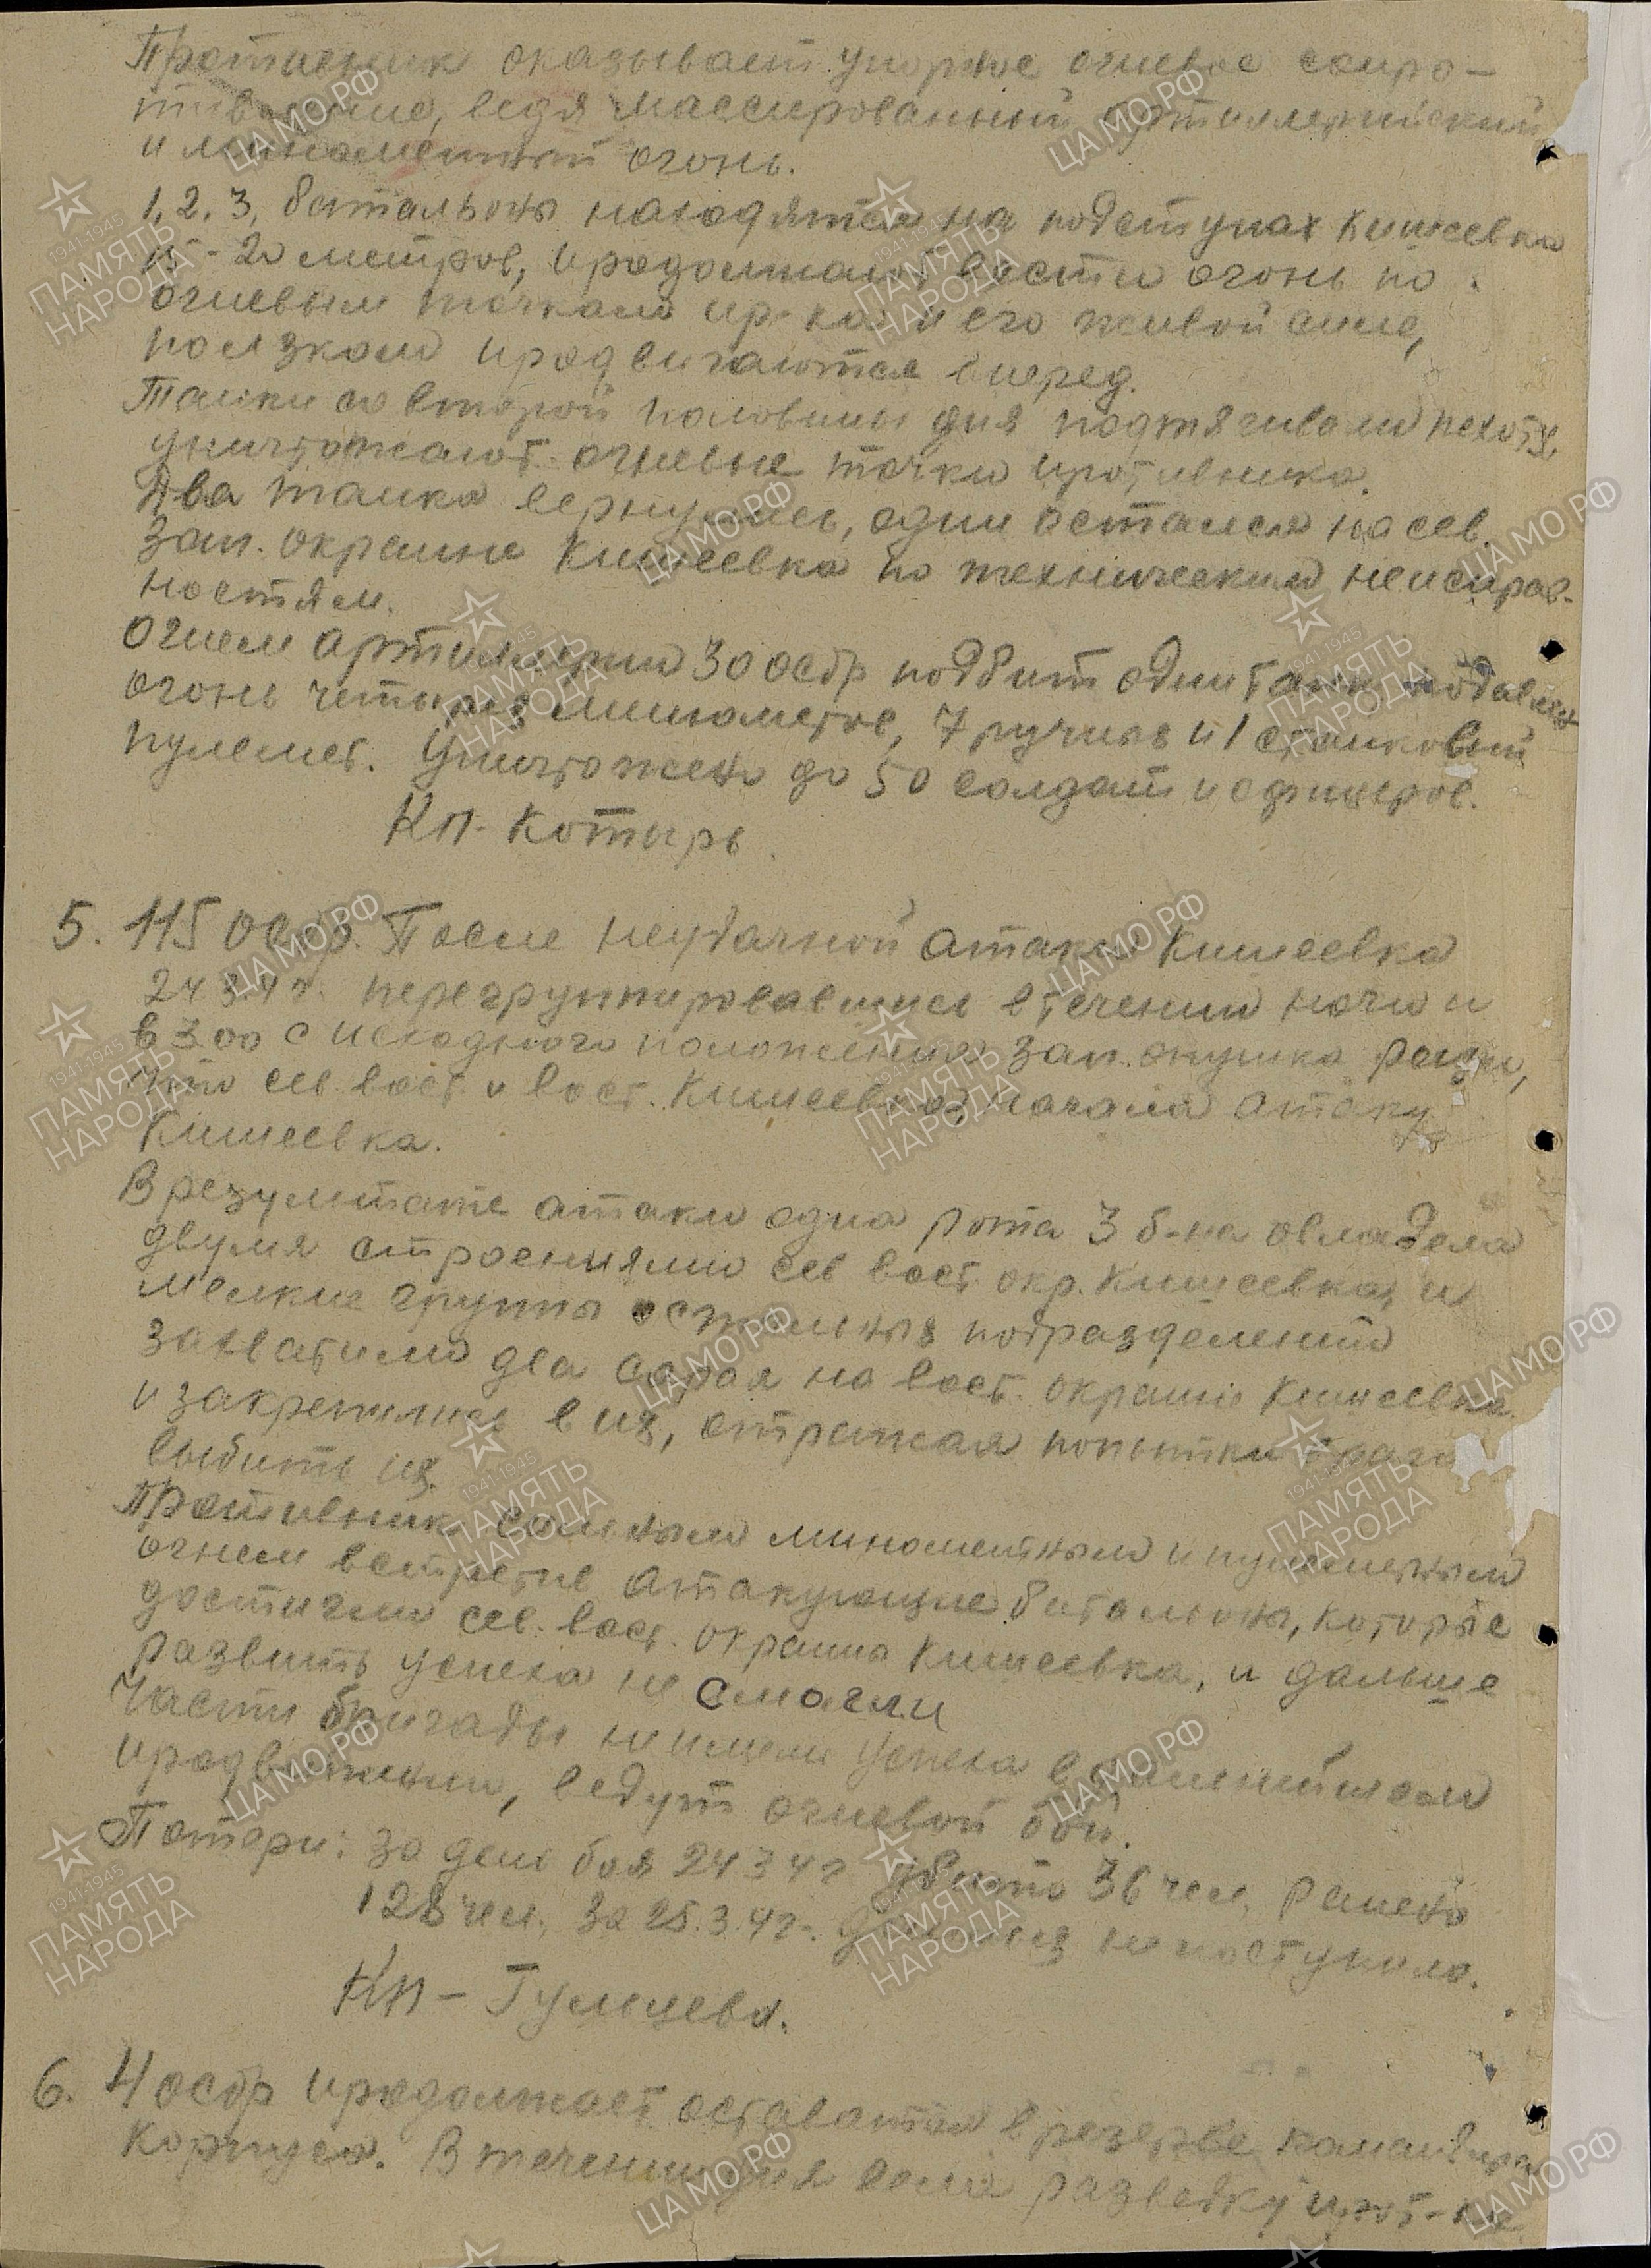 Противник оказывает упорное огневое сопро-
тивление, ведя массированный артиллерийский
и минометный огонь.
1, 2, 3, батальоны находятся на подступах Кишеевка
15-20 метров, продолжают вести огонь по
огневым точкам пр-ка и его живой силе,
ползком продвигаются вперед.
Танки со второй половины дня подтягивали пехоту,
уничтожают огневые точки противника.
Два танка вернулись, один остался на сев.
зап. окраине Кишеевка по техническим неисправ-
ностям.
Огнем артиллерии 30 осбр подбит один танк, подавлен
огонь четырех минометов, 7 ручных и 1 станковый
пулемет. Уничтожено до 50 солдат и офицеров.
КП - Котырь
5. 115 осбр. После неудачной атаки Кишеевка
24.3.42. перегруппировавшись в течении ночи и
в 3.00 с исходного положения зап. опушка рощи,
что сев. вост. и вост. Кишеевка, начала атаку
Кишеевка.
В результате атаки одна рота 3 б-на овладела
двумя строениями сев вост. окр. Кишеевка, и
мелкие группы остальных подразделений
захватили два сарая на вост. окраине Кишеевка
и закрепились в их, отражая попытки врага
выбить их.
Противник сильным минометным и пулеметным
огнем встретив атакующие батальоны, которые
достигли сев. вост. окраина Кишеевка, и дальше
развить успеха не смогли
Части бригады не имели успеха в дальнейшем
продвижении, ведут огневой бой.
Потери: за день боя 24 3 42 убито 36 чел, ранено
128 чел, за 25.3.42. данных не поступило.
КП -
6. 4 осбр продолжает оставатся в резерве командира
корпуса. В течении дня вела разведку прот-ка
ЦА МО РФ
1941-1945
ПАМЯТЬ
НАРОДА